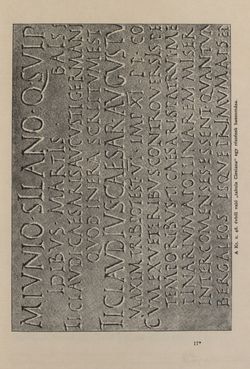 M IVNIO SILANO Q SVLP
IDIBVS MARTIS BAIS
TI CLAVDI CAESARIS AVGVSTI GERMANI
QVOD INFRA SCRIPTVM EST
TI CLAVDIVS CAESAR AVGVSTV
MAXIM TRIB POTEST VI IMP XI P P CO
CVM EX VETERIBVS CONTROVERSIS PE
TEMPORIBVS TI CAESARIS PATRVI ME
INARIVM APOLLINAREM MISER
INTER COMENSES ESSENT QVANTV
BERGALEOS ISQVE PRIMVM ABSE
A Kr. u. 46. évből való „tabula Clesiana" egy részének hasonmása.
17*